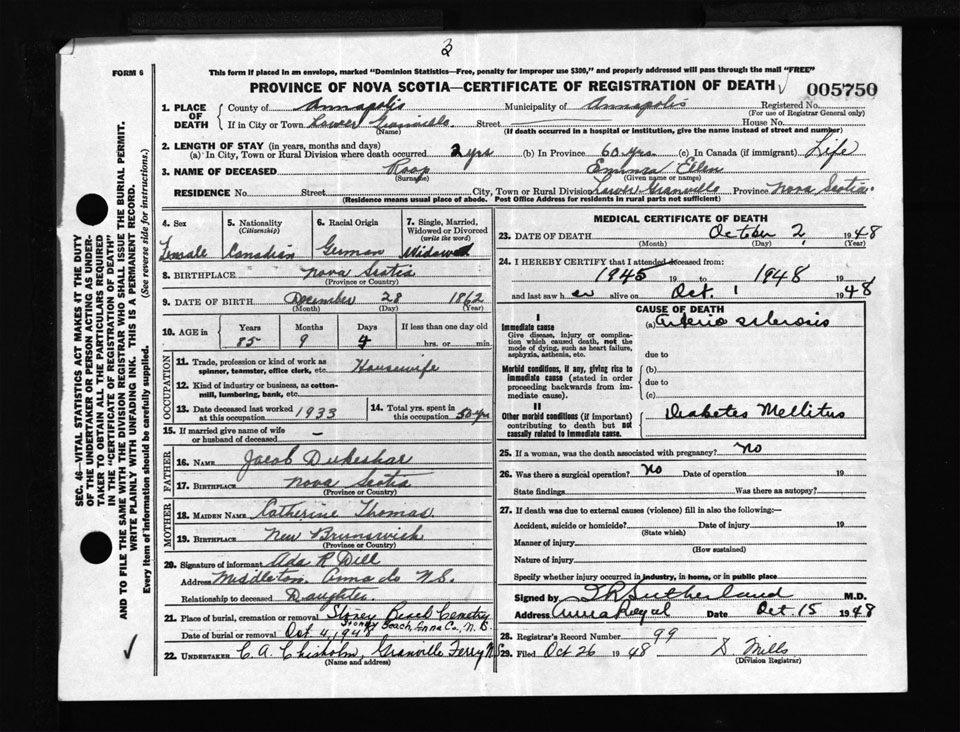 2
FORM 6
This form if placed in an envelope, marked "Dominion Statistics—Free, penalty for improper use $300," and properly addressed will pass through the mail "FREE"
PROVINCE OF NOVA SCOTIA—CERTIFICATE OF REGISTRATION OF DEATH ✓ 005750
1. PLACE OF DEATH
County of Annapolis Municipality of Annapolis Registered No.
(For use of Registrar General only)
If in City or Town Lower Granville Street House No.
(Name) (If death occurred in a hospital or institution, give the name instead of street and number)
2. LENGTH OF STAY (in years, months and days)
(a) In City, Town or Rural Division where death occurred 2 yrs (b) In Province 60 yrs. (c) In Canada (if immigrant) Life
3. NAME OF DECEASED Roop Emma Ellen
(Surname) (Given name or names)
RESIDENCE No. Street City, Town or Rural Division Lower Granville Province Nova Scotia
(Residence means usual place of abode. Post Office Address for residents in rural parts not sufficient)
4. Sex
Female
5. Nationality
(Citizenship)
Canadian
6. Racial Origin
German
7. Single, Married, Widowed or Divorced
(write the word)
Widowed
8. BIRTHPLACE Nova Scotia
(Province or Country)
9. DATE OF BIRTH December 28 1862
(Month) (Day) (Year)
10. AGE in Years Months Days If less than one day old
85 9 4 hrs. or min.
OCCUPATION
11. Trade, profession or kind of work as
spinner, teamster, office clerk, etc. Housewife
12. Kind of industry or business, as cotton-
mill, lumbering, bank, etc.
13. Date deceased last worked
at this occupation 1933
14. Total yrs. spent in
this occupation 50 yrs
15. If married give name of wife
or husband of deceased —
FATHER
16. NAME Jacob Dukeshar
17. BIRTHPLACE Nova Scotia
(Province or Country)
MOTHER
18. MAIDEN NAME Catherine Thomas
19. BIRTHPLACE New Brunswick
(Province or Country)
20. Signature of informant Ada R Dill
Address Middleton Anna Co N.S.
Relationship to deceased Daughter
21. Place of burial, cremation or removal Stoney Beach Cemetry
Stoney Beach, Anna Co., N.S.
Date of burial or removal Oct 4, 1948
22. UNDERTAKER C. A. Chisholm, Granville Ferry N.S.
(Name and address)
MEDICAL CERTIFICATE OF DEATH
23. DATE OF DEATH October 2, 1948
(Month) (Day) (Year)
24. I HEREBY CERTIFY that I attended deceased from:
1945 19 to 1948 19
and last saw her alive on Oct. 1 1948
CAUSE OF DEATH
I
Immediate cause
Give disease, injury or complica-
tion which caused death, not the
mode of dying, such as heart failure,
asphyxia, asthenia, etc.
(a) Arterio sclerosis
due to
Morbid conditions, if any, giving rise to
immediate cause (stated in order
proceeding backwards from im-
mediate cause).
(b)
due to
(c)
II
Other morbid conditions (if important)
contributing to death but not
causally related to immediate cause.
Diabetes Mellitus
25. If a woman, was the death associated with pregnancy? No
26. Was there a surgical operation? No Date of operation 19
State findings Was there an autopsy?
27. If death was due to external causes (violence) fill in also the following:—
Accident, suicide or homicide? Date of injury 19
(State which)
Manner of injury
(How sustained)
Nature of injury
Specify whether injury occurred in industry, in home, or in public place
Signed by Sutherland M.D.
Address Anna Royal Date Oct. 15 1948
28. Registrar's Record Number 99
29. Filed Oct 26 1948 D. Mills
(Division Registrar)
SEC. 46—VITAL STATISTICS ACT MAKES IT THE DUTY
OF THE UNDERTAKER OR PERSON ACTING AS UNDER-
TAKER TO OBTAIN ALL THE PARTICULARS REQUIRED
IN THE "CERTIFICATE OF REGISTRATION OF DEATH"
AND TO FILE THE SAME WITH THE DIVISION REGISTRAR WHO SHALL ISSUE THE BURIAL PERMIT.
WRITE PLAINLY WITH UNFADING INK. THIS IS A PERMANENT RECORD.
Every item of information should be carefully supplied. (See reverse side for instructions.)
✓